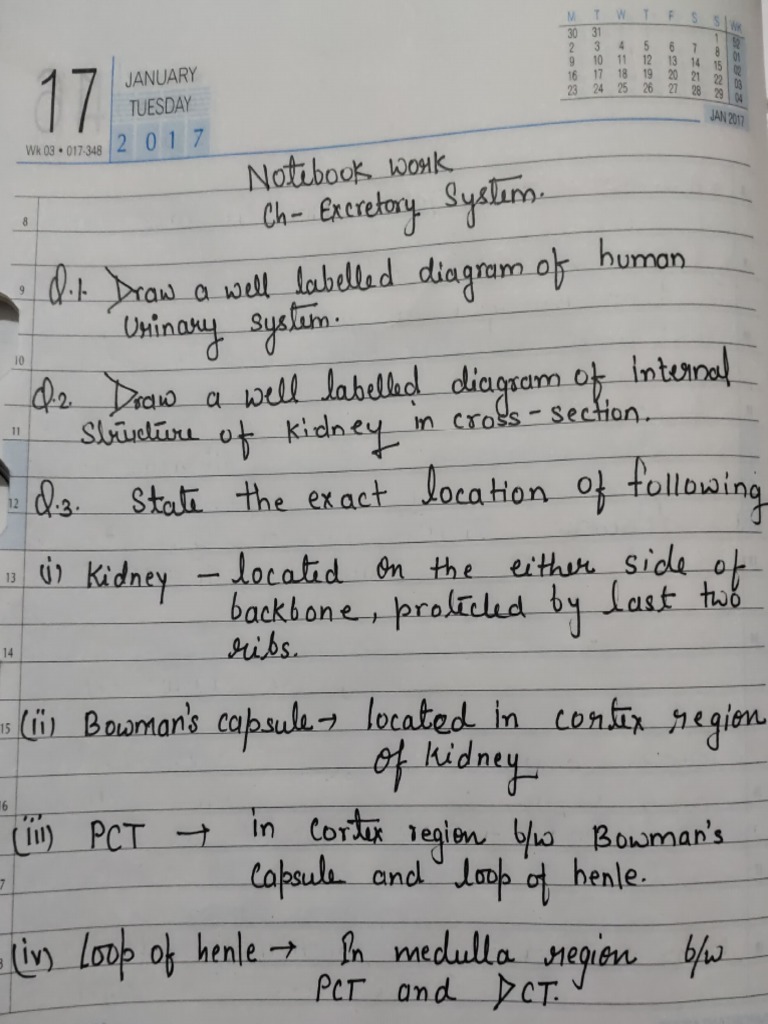 17
JANUARY
TUESDAY
2017
Wk 03 • 017-348
M T W T F S S WK
30 31 1 52
2 3 4 5 6 7 8 01
9 10 11 12 13 14 15 02
16 17 18 19 20 21 22 03
23 24 25 26 27 28 29 04
JAN 2017
Notebook work
Ch- Excretory System.
8
9 Q.1. Draw a well labelled diagram of human
Urinary system.
10
Q.2. Draw a well labelled diagram of internal
11 Structure of kidney in cross-section.
12 Q.3. State the exact location of following
13 (i) Kidney – located on the either side of
backbone, protected by last two
14 ribs.
15 (ii) Bowman's capsule → located in cortex region
of kidney
6
(iii) PCT → in cortex region b/w Bowman's
7 Capsule and loop of henle.
(iv) Loop of henle → In medulla region b/w
PCT and DCT.